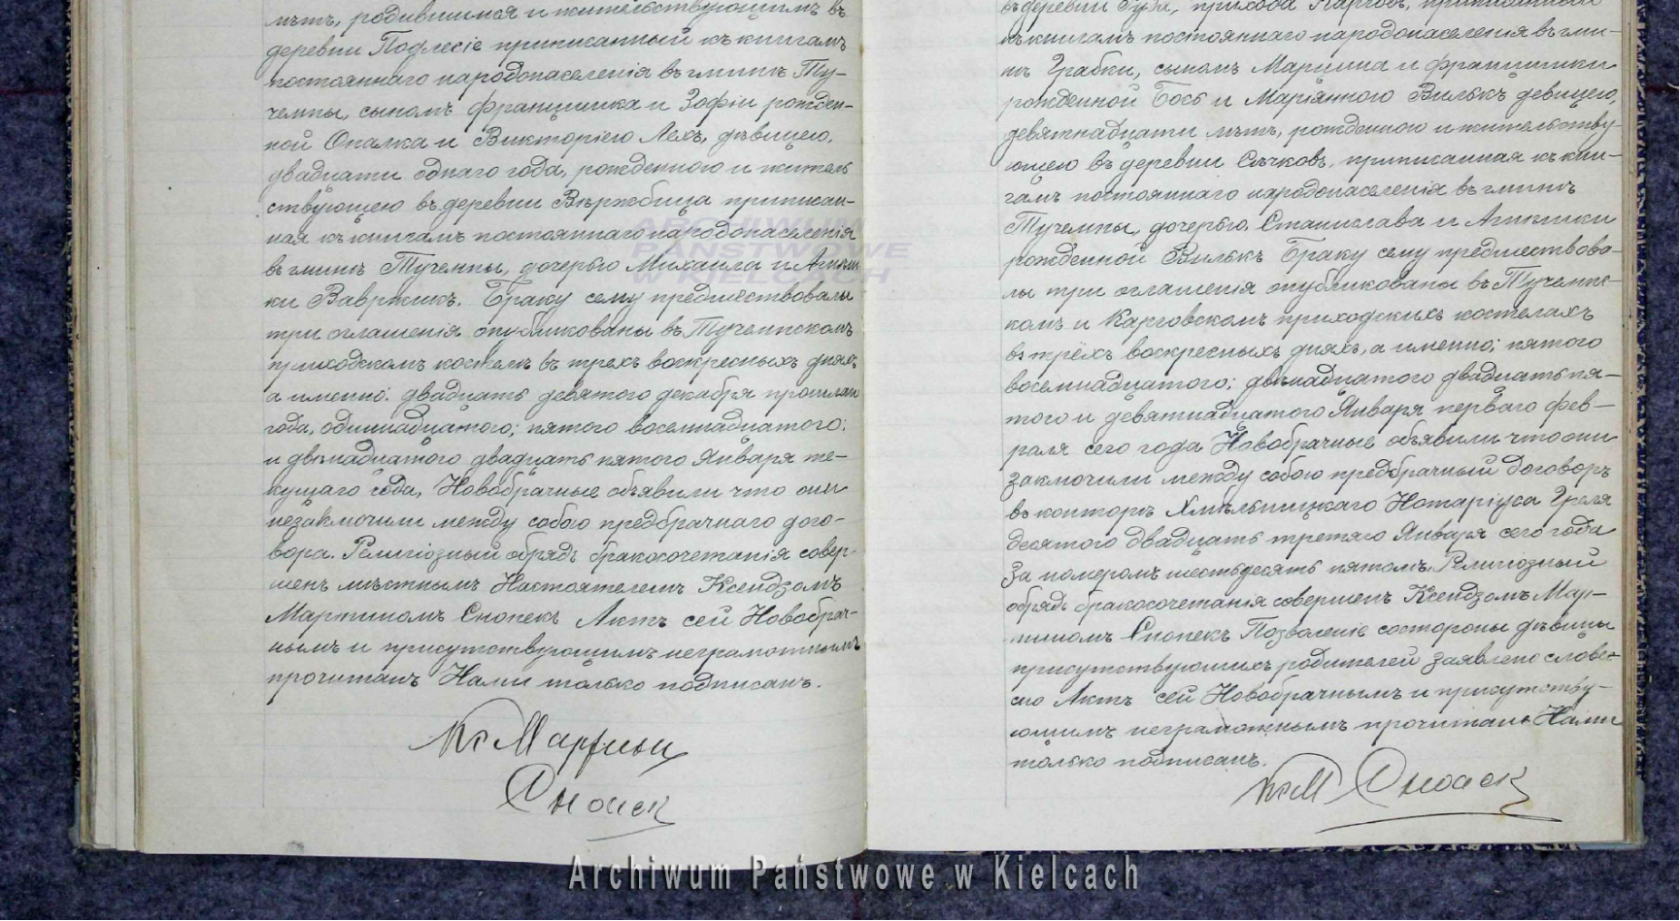 лѣтъ, родившимся и жительствующимъ въ
деревни Подлесіе приписанный къ книгамъ
постояннаго народонаселенія въ гминѣ Ту-
чемпы, сыномъ Францишка и Зофіи рожден-
ной Опалка и Викторіею Лехъ, дѣвицею,
двадцати однаго года, рожденною и житель
ствующею въ деревни Вержбица приписан-
ная къ книгамъ постояннаго народонаселенія
въ гминѣ Тучемпы, дочерью Михаила и Агнѣш
ки Вавржикъ. Браку сему предшествовалы
три оглашенія опубликованы въ Тучемпскомъ
приходскомъ костелѣ въ трехъ воскресныхъ дняхъ,
а именно: двадцать девятого декабря прошлаго
года, одиннадцатого; пятого восемнадцатого;
и двѣнадцатого двадцать пятого Января те-
кущаго года, Новобрачные объявили что они
незаключили между собою предбрачнаго дого-
вора. Религіозный обрядъ бракосочетанія совер-
шенъ мѣстнымъ Настоятелемъ Ксендзомъ
Мартиномъ Снопекъ Актъ сей Новобрач-
нымъ и присутствующимъ неграмотнымъ
прочитанъ Нами только подписанъ.
Кс Мартинъ
Снопек
въ деревни приписанный
къ книгамъ постояннаго народонаселенія въ гми-
нѣ Грабки, сыномъ Марцина и Францишки
рожденной Бось и Маріянною Вилькъ девицею,
девятнадцати лѣтъ, рожденною и жительству-
ющею въ деревни Сѣчковъ, приписанная къ кни-
гамъ постояннаго народонаселенія въ гминѣ
Тучемпы, дочерью, Станислава и Агнѣшки
рожденной Вилькъ Браку сему предшествова-
лы три оглашенія опубликованы въ Тучемпс-
комъ и Карговскомъ приходскихъ костелахъ
въ трёхъ воскресныхъ дняхъ, а именно; пятого
восемнадцатого; двѣнадцатого двадцать пя-
того и девятнадцатого Января первого фев-
раля сего года Новобрачные объявили что они
заключили между собою предбрачный договоръ
въ конторѣ Хмѣльницкаго Нотаріуса
десятого двадцать третяго Января сего года
За номеромъ шестьдесятъ пятомъ. Религіозный
обрядъ бракосочетанія совершенъ Ксендзомъ Мар-
тиномъ Снопекъ Позволеніе состороны дѣвицы
присутствующихъ родителей заявлено словес-
но Актъ сей Новобрачнымъ и присутству-
ющимъ неграмотнымъ прочитанъ Нами
только подписанъ.
Кс М Снопек
ARCHIWUM
PAŃSTWOWE
W KIELCACH
Archiwum Państwowe w Kielcach